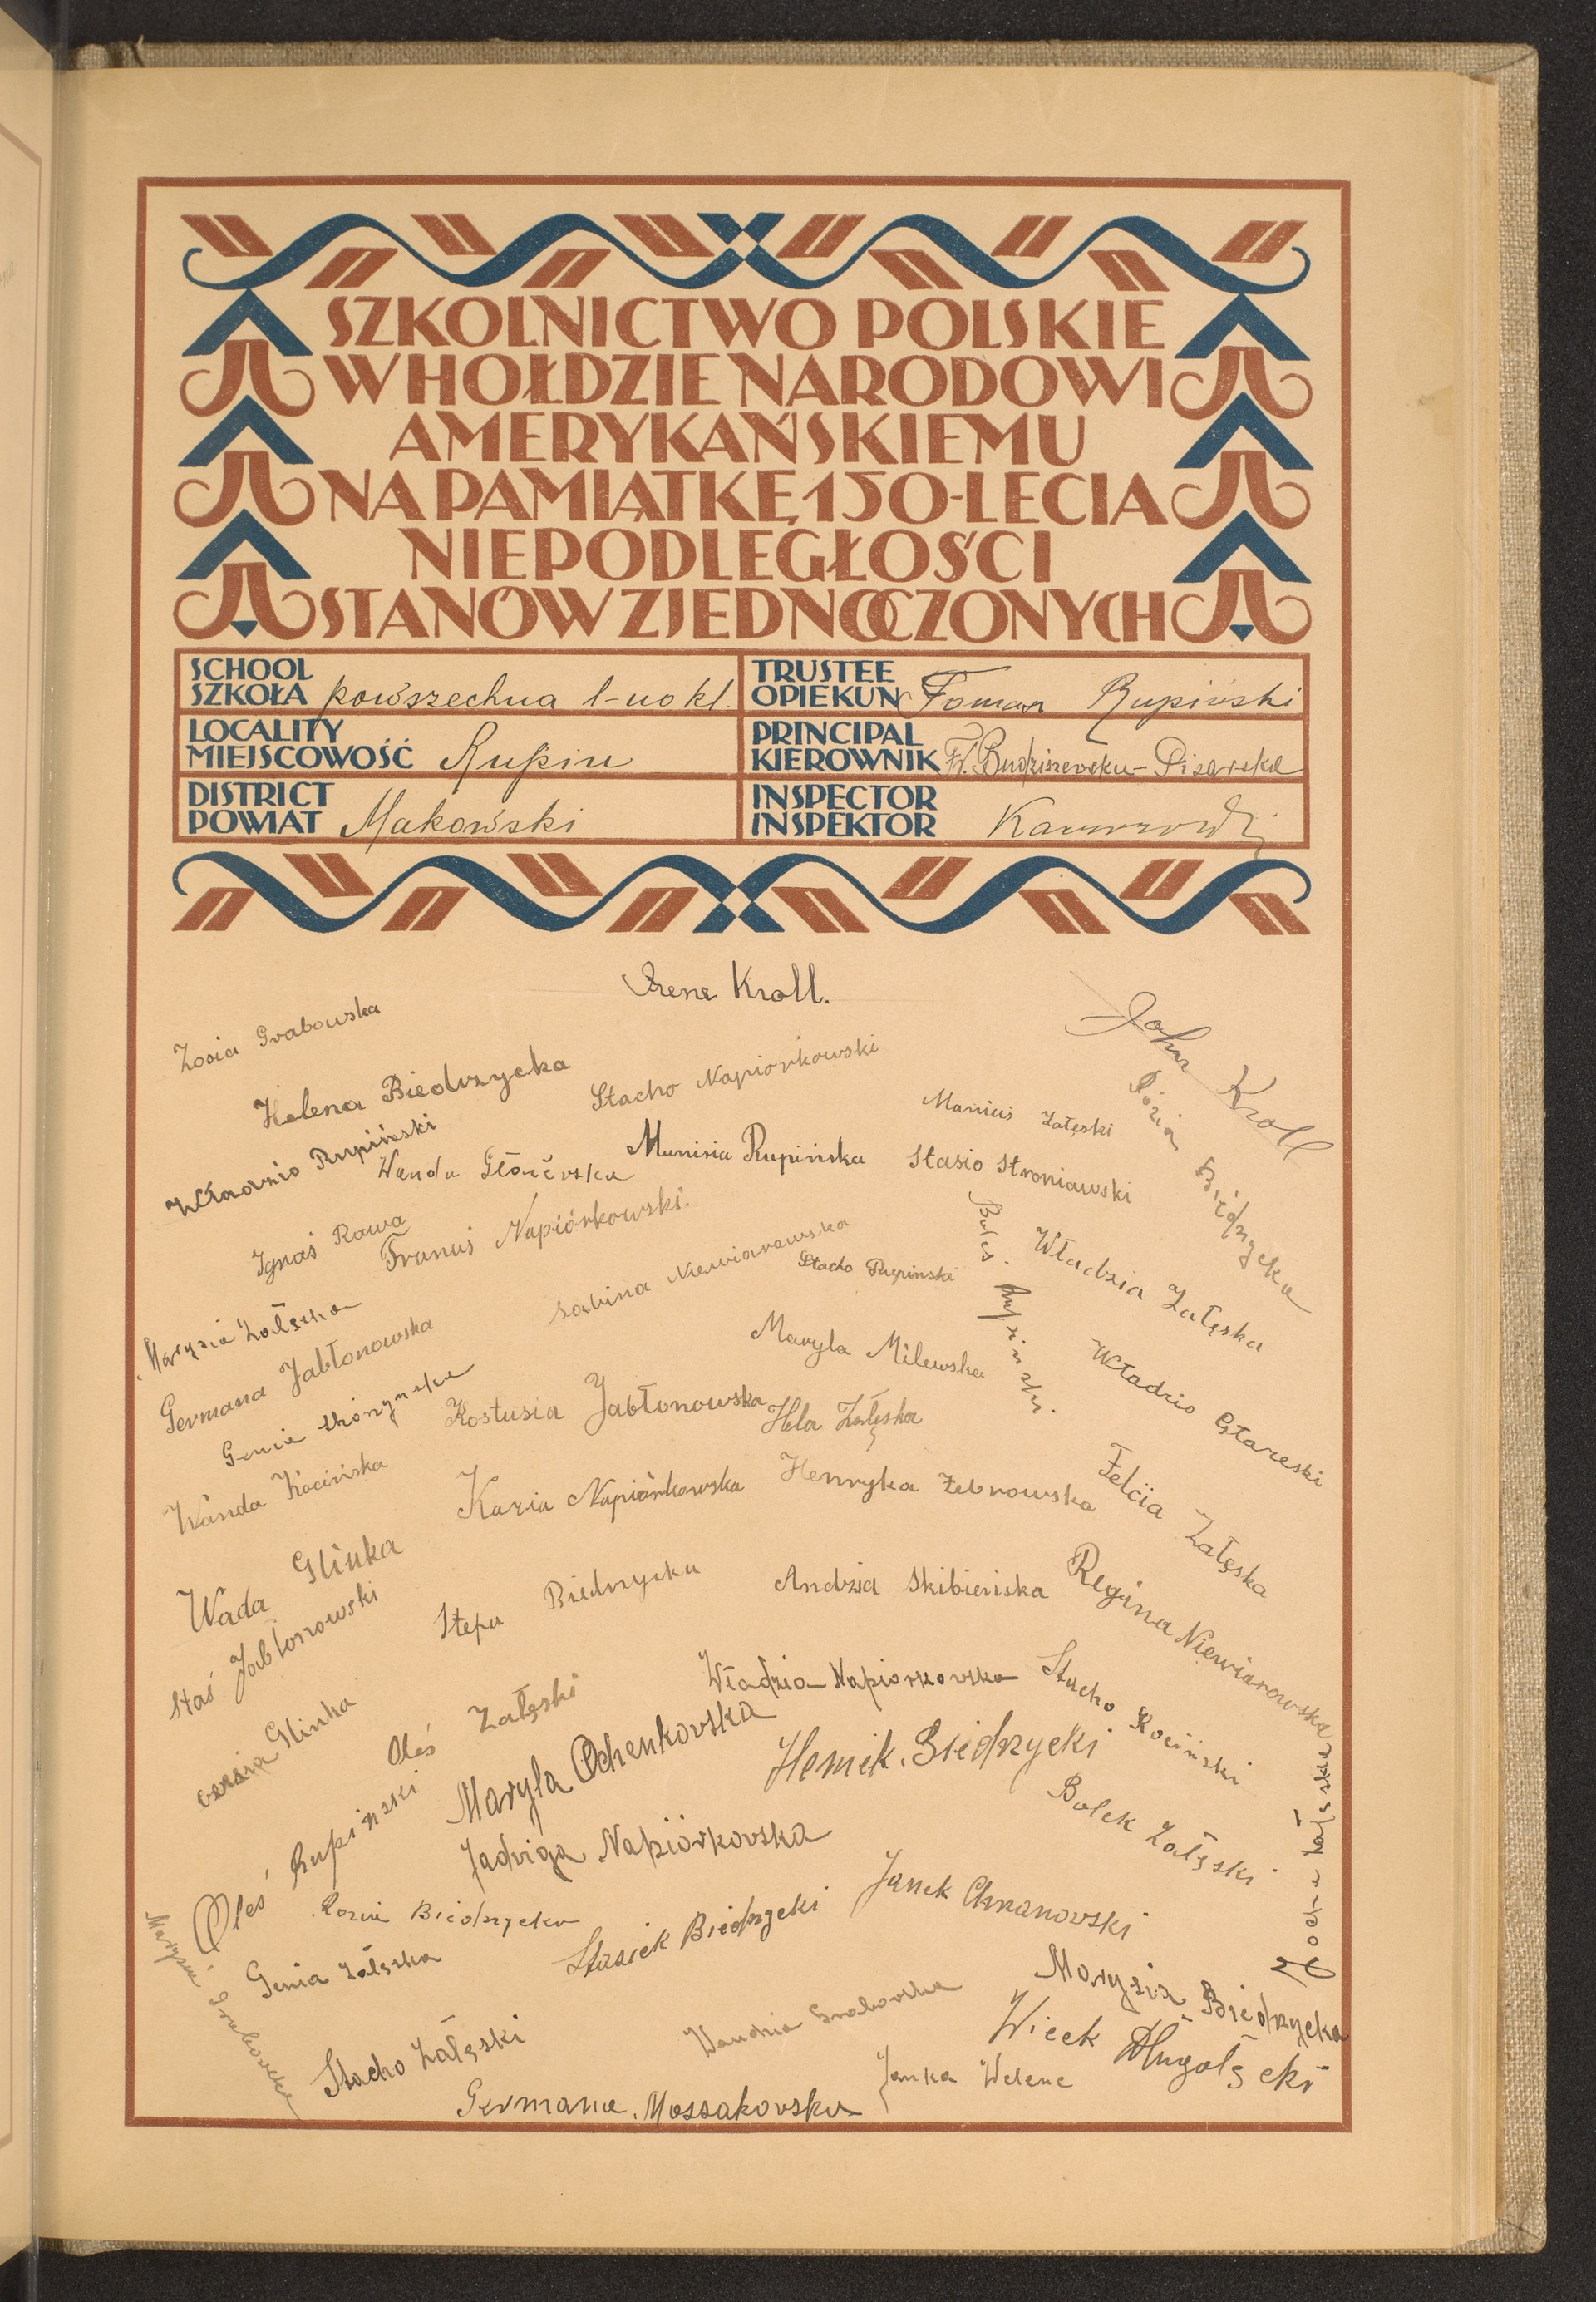 SZKOLNICTWO POLSKIE
W HOŁDZIE NARODOWI
AMERYKAŃSKIEMU
NA PAMIĄTKĘ 150-LECIA
NIEPODLEGŁOŚCI
STANÓW ZJEDNOCZONYCH
SCHOOL
SZKOŁA powszechna 1-no kl.
TRUSTEE
OPIEKUN Roman Rupiński
LOCALITY
MIEJSCOWOŚĆ Rupin
PRINCIPAL
KIEROWNIK Budziszewska-Pisarska
DISTRICT
POWIAT Makowski
INSPECTOR
INSPEKTOR
Irene Kroll.
John Kroll
Zosia Grabowska
Helena Biedrzycka
Stacho Napiorkowski
Maniuś Załęski
Rózia Biedrzycka
Władzio Rupiński
Wanda
Munisia Rupińska
Stasio Stroniawski
Ignaś Rawa
Franuś Napiórkowski.
Sabina Niewiarowska
Stacho Rupinski
Boleś. Rupinski.
Władzia Załęska
Marysia Załęska
Germana Jabłonowska
Maryla Milewska
Władzio Glareski
Genia
Kostusia Jabłonowska
Hela Załęska
Wanda Kocińska
Kazia Napiórkowska
Henryka Żebrowska
Felcia Załęska
Wada Glinka
Stefa Biedrzycka
Andzia Skibieńska
Regina Niewiarowska
Staś Jabłonowski
Czesia Glinka
Oleś Załęski
Władzia Napiorkowska
Stacho Kociński
Maryla Ochenkowska
Heniek Biedrzycki
Bolek Załęski
Zocha Załęska
Oleś Rupiński
Jadwiga Napiórkowska
Rozia Biedrzycka
Stasiek Biedrzycki
Janek Chranowski
Marysia Grabowska
Genia Załęska
Marysia Biedrzycka
Stacho Załęski
Wandzia Grabowska
Wicek Długołęcki
Germana Mossakowska
Janka Welenc